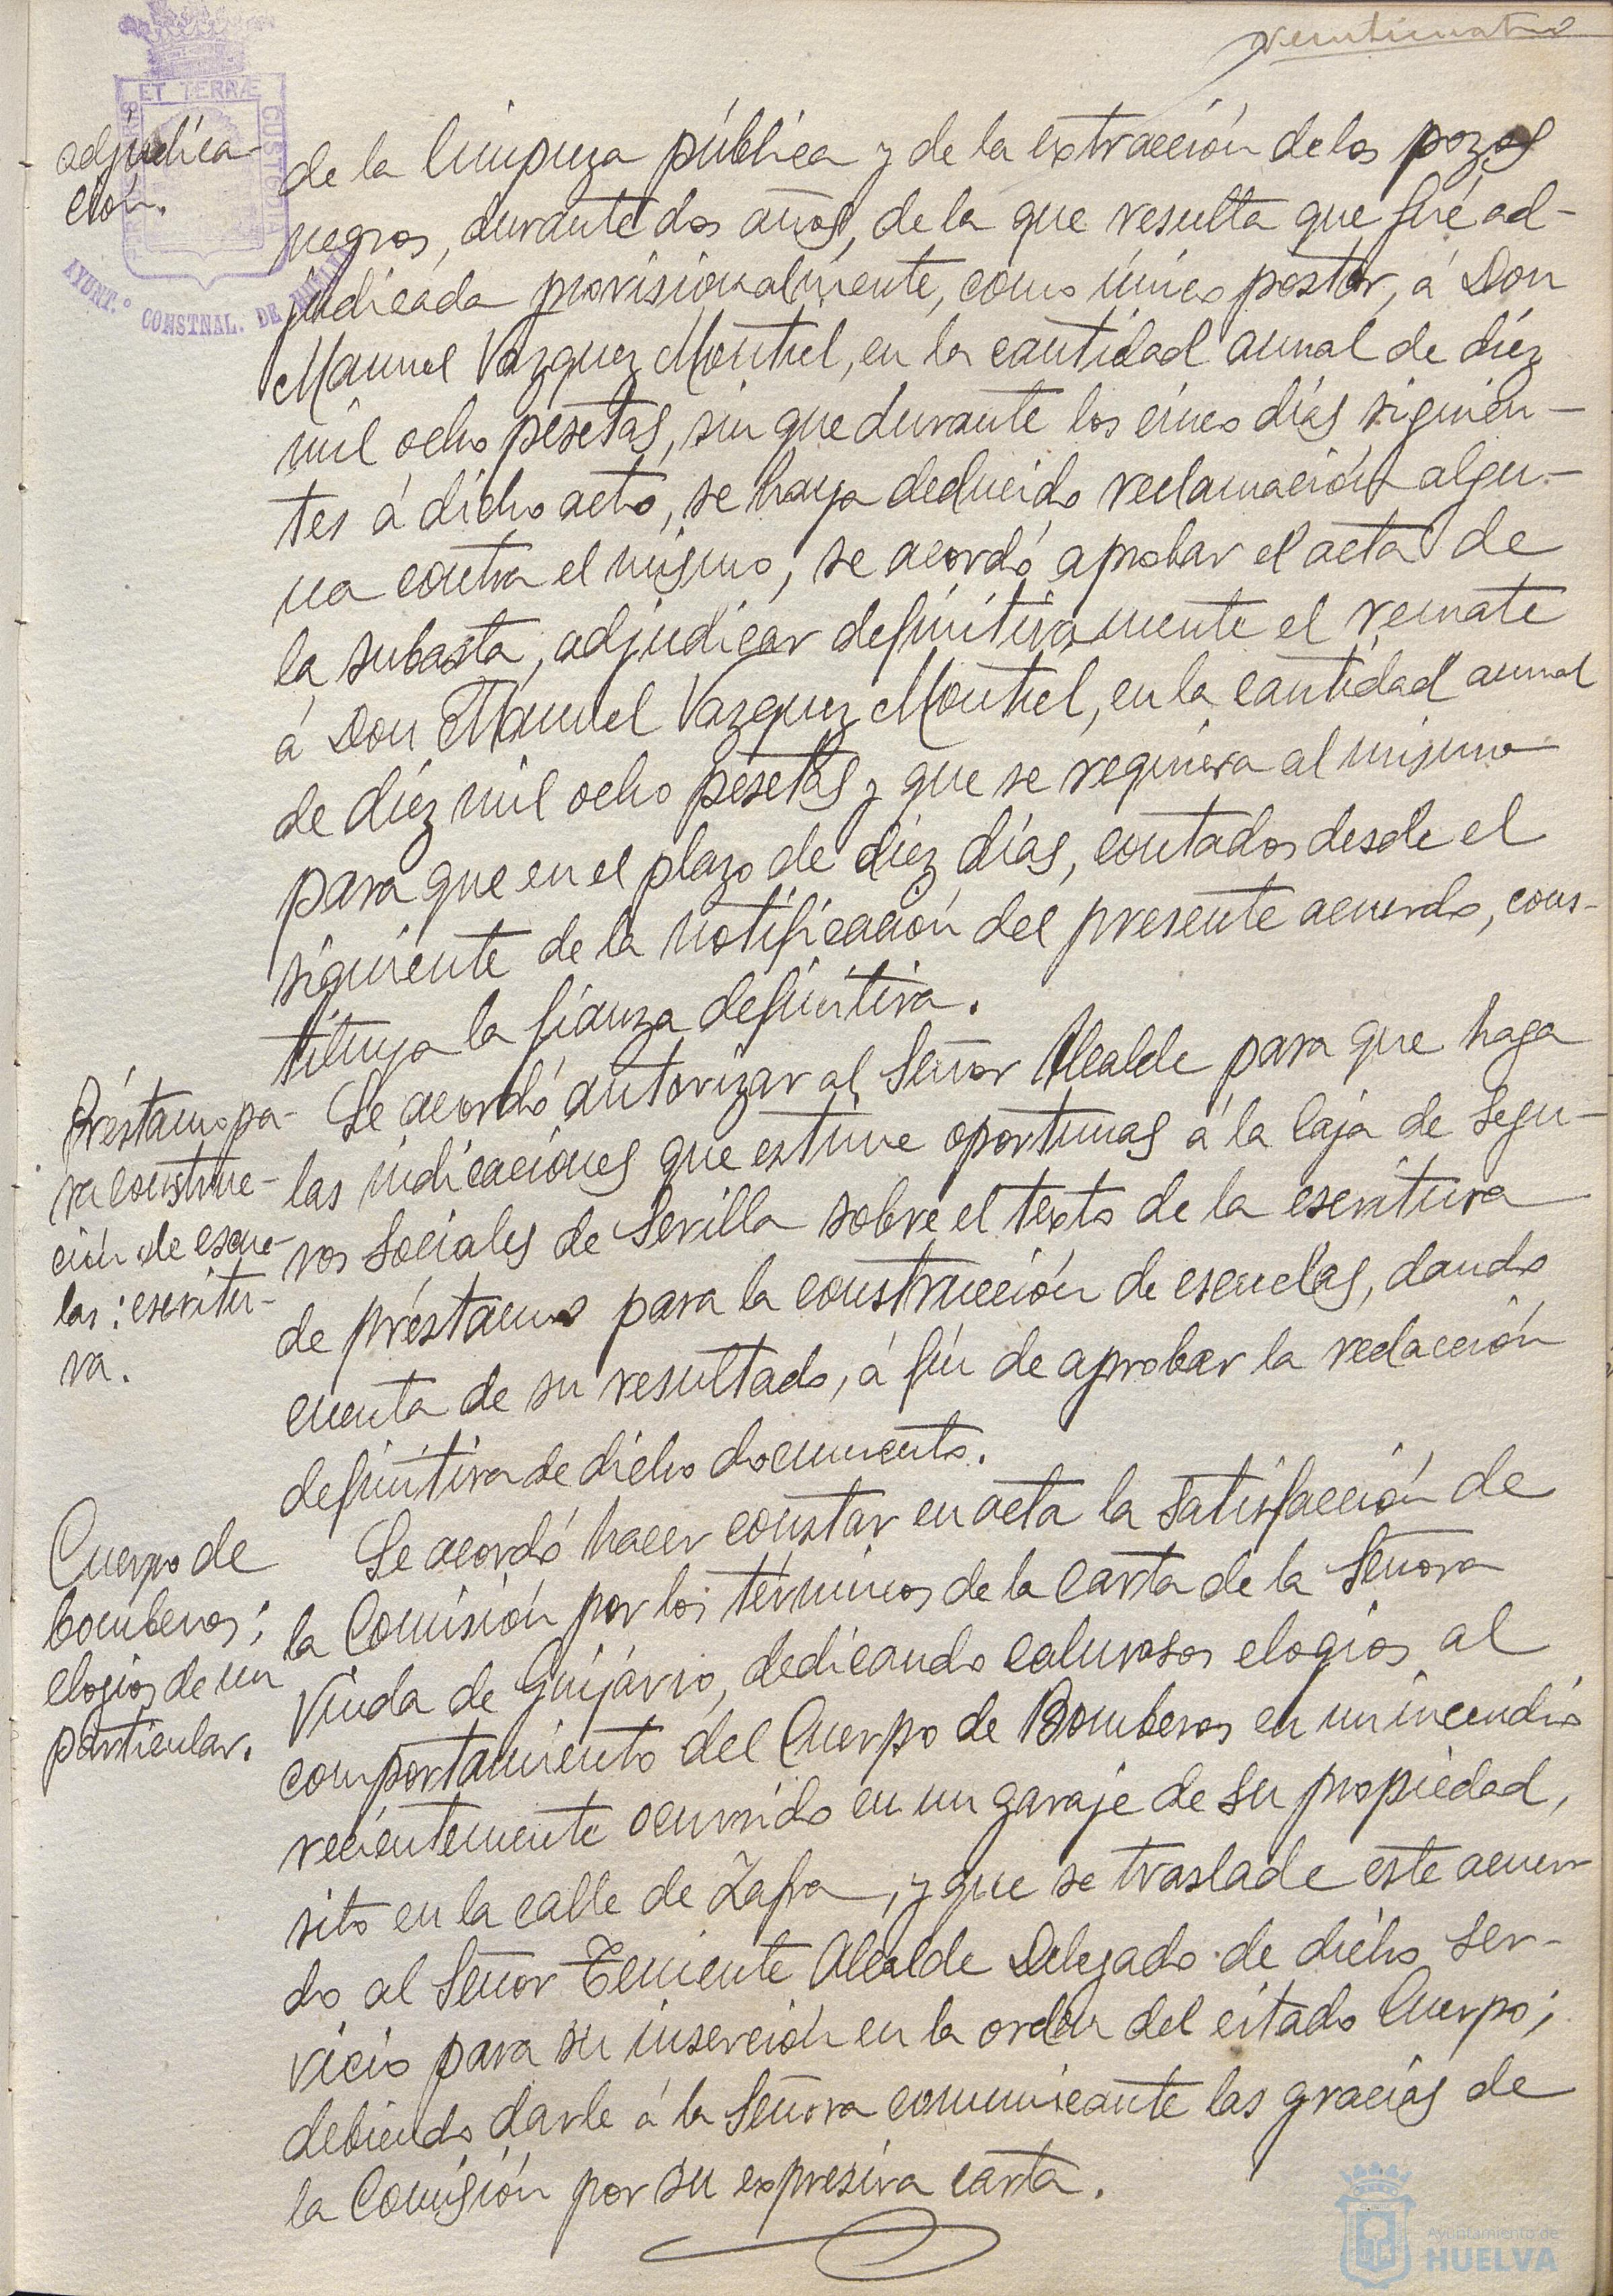 veinticuatro
ET TERRÆ
CUSTODIA
AYUNT.º CONSTNAL. DE HUELVA
adjudica-
ción.
de la limpieza pública y de la extracción de los pozos
negros, durante dos años, de la que resulta que fué ad-
judicada provisionalmente, como único postor, á Don
Manuel Vazquez Montiel, en la cantidad anual de diez
mil ocho pesetas, sin que durante los cinco días siguien-
tes á dicho acto, se haya deducido reclamación algu-
na contra el mismo, se acordó aprobar el acta de
la subasta, adjudicar definitivamente el remate
á Don Manuel Vazquez Montiel, en la cantidad anual
de diez mil ocho pesetas y que se requiera al mismo
para que en el plazo de diez días, contados desde el
siguiente de la notificación del presente acuerdo, cons-
tituya la fianza definitiva.
Préstamo pa-
ra construc-
ción de escue-
las: escritu-
ra.
Se acordó autorizar al Señor Alcalde para que haga
las indicaciones que estime oportunas á la Caja de Segu-
ros Sociales de Sevilla sobre el texto de la escritura
de préstamo para la construcción de escuelas, dando
cuenta de su resultado, á fin de aprobar la redacción
definitiva de dicho documento.
Cuerpo de
bomberos;
elogios de un
particular.
Se acordó hacer constar en acta la satisfacción de
la Comisión por los términos de la carta de la Señora
Viuda de Guijarro, dedicando calurosos elogios al
comportamiento del Cuerpo de Bomberos en un incendio
recientemente ocurrido en un garaje de su propiedad,
sito en la calle de Zafra, y que se traslade este acuer-
do al Señor Teniente Alcalde Delegado de dicho ser-
vicio para su inserción en la orden del citado Cuerpo;
debiendo darle á la Señora comunicante las gracias de
la Comisión por su expresiva carta.
Ayuntamiento de
HUELVA